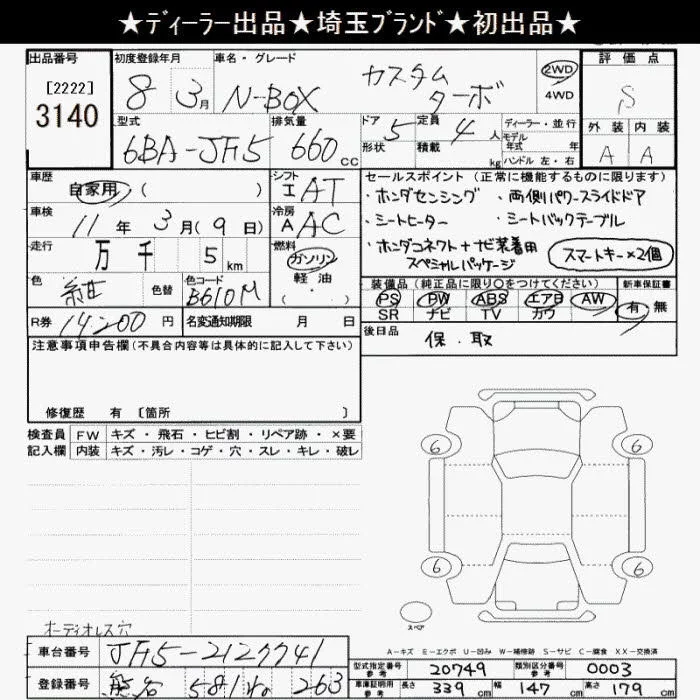 ★ディーラー出品★埼玉ブランド★初出品★
出品番号
[2222]
3140
初度登録年月
8 3月
車名・グレード
N-BOX カスタム ターボ
2WD
4WD
評価点
S
外装 内装
A A
型式
6BA-JF5
排気量
660cc
ドア 5
形状
定員 4人
積載 kg
ディーラー・並行
モデル
年式 年
ハンドル 左・右
車歴
自家用 ( )
シフト
I AT
車検
11年 3月(9日)
冷房
A AC
走行
万 千 5 km
燃料
ガソリン
軽油
( ・ )
色
紺
色替
色コード
B610M
R券 14200 円
名変通知期限 月 日
セールスポイント (正常に機能するものに限ります)
・ホンダセンシング ・両側パワースライドドア
・シートヒーター ・シートバックテーブル
・ホンダコネクト+ナビ装着用
スペシャルパッケージ
スマートキー×2個
装備品 (純正品に限り○をつけてください)
PS PW ABS エア・B AW
SR ナビ TV カワ
新車保証書
有 無
後日品
保.取
注意事項申告欄 (不具合内容等は具体的に記入して下さい)
修復歴 有 [箇所 ]
検査員 FW キズ・飛石・ヒビ割・リペア跡・×要
記入欄 内装 キズ・汚レ・コゲ・穴・スレ・キレ・破レ
6 6
6 6
スペア
オーディオレス穴
A-キズ E-エクボ U-凹み W-補修跡 S-サビ C-腐食 XX-交換済
車台番号 JF5-2127741
登録番号 熊谷 581 263
型式指定番号
参考
20749
類別区分番号
参考
0003
車庫証明用
参考
長さ 339cm 幅 147cm 高さ 179cm